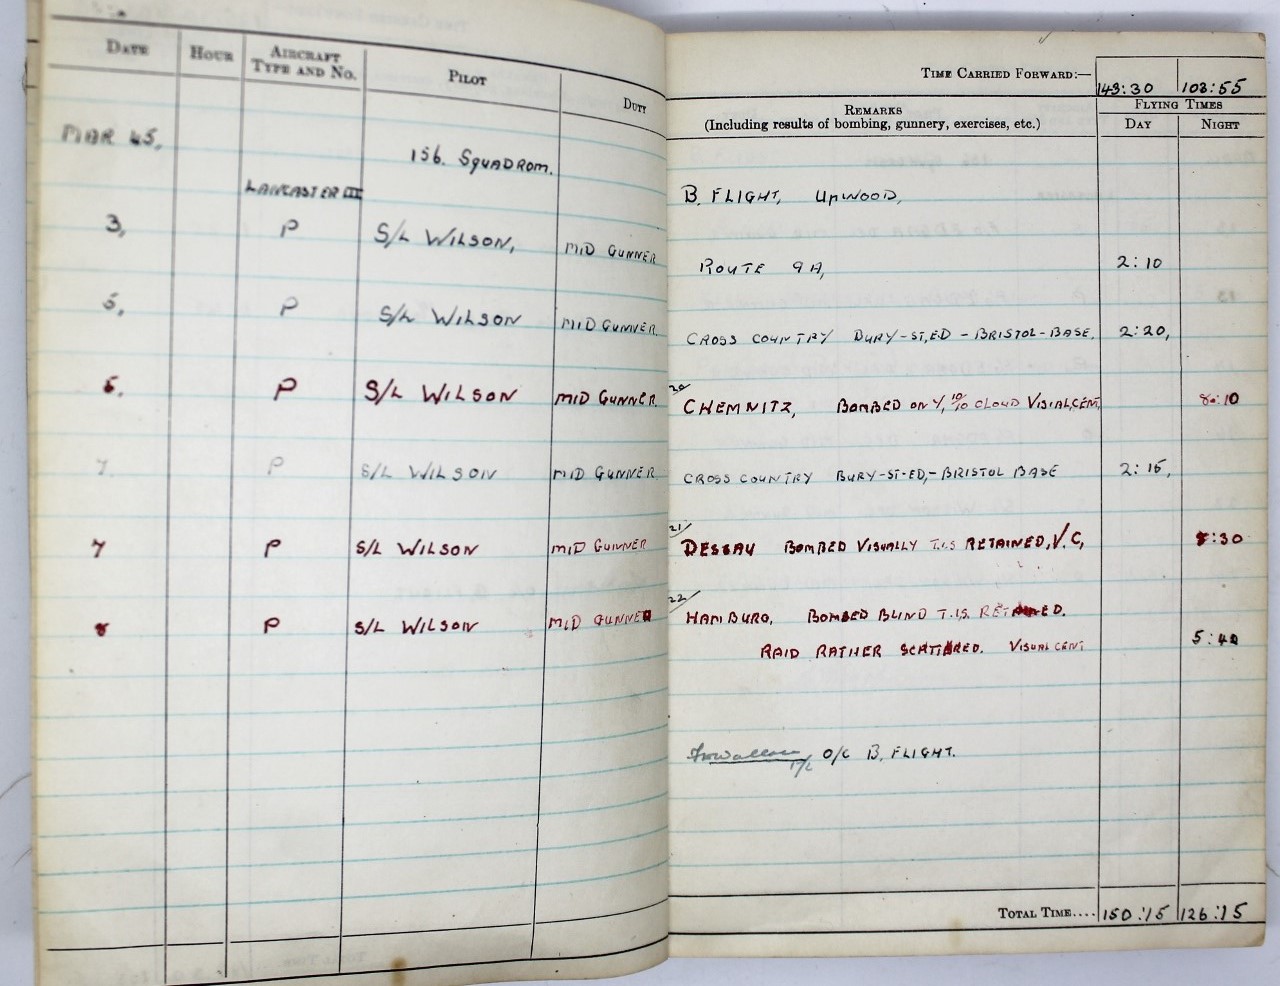 DATE HOUR AIRCRAFT TYPE AND NO. PILOT DUTY
TIME CARRIED FORWARD:— 143:30 103:55
REMARKS (Including results of bombing, gunnery, exercises, etc.) FLYING TIMES DAY NIGHT
MAR 45,
156. SQUADROM.
LANCASTER III
B. FLIGHT, UPWOOD,
3, P S/L WILSON, MID GUNNER ROUTE 9A, 2:10
5, P S/L WILSON MID GUNNER. CROSS COUNTRY BURY-ST,ED - BRISTOL-BASE. 2:20,
5. P S/L WILSON MID GUNNER. 20/ CHEMNITZ, BOMBED ON Y, 10/10 CLOUD VISIAL,CENT, 8:10
7. P S/L WILSON MID GUNNER. CROSS COUNTRY BURY-ST-ED,- BRISTOL BASE 2:15,
7 P S/L WILSON MID GUNNER 21/ DESSAU BOMBED VISUALLY T.I.S RETAINED, V.C, 8:30
8 P S/L WILSON MID GUNNER 22/ HAMBURG, BOMBED BLIND T.I.S. RETAINED.
RAID RATHER SCATTERED. VISUAL CENT 5:40
O/C B, FLIGHT.
TOTAL TIME.... 150:15 126:15